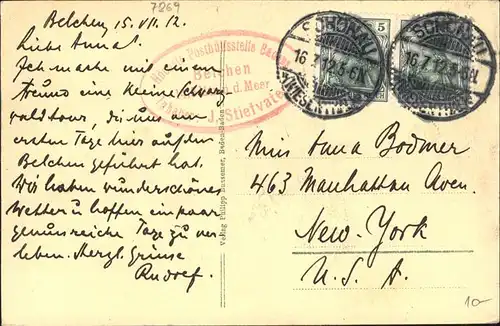 7869
Belchen 15. VII. 12.
Liebe Anna!
Ich mache mit einem
Freund eine kleine Schwarz
waldtour, die uns am
ersten Tage hier auf den
Belchen geführt hat.
Wir haben wunderschönes
Wetter u. hoffen ein paar
genussreiche Tage zu ver
leben. Herzl. Grüsse
Rudolf.
Posthilfsstelle
Belchen
ü. d. Meer
J. Stiefvater
Verlag Philipp Bussemer, Baden-Baden
SCHÖNAU
16.7.12.5-6N
5
SCHÖNAU
16.7.12.5-6N
Miss Anna Bodmer
463 Manhattan Aven.
New. York
U. S. A.
10-